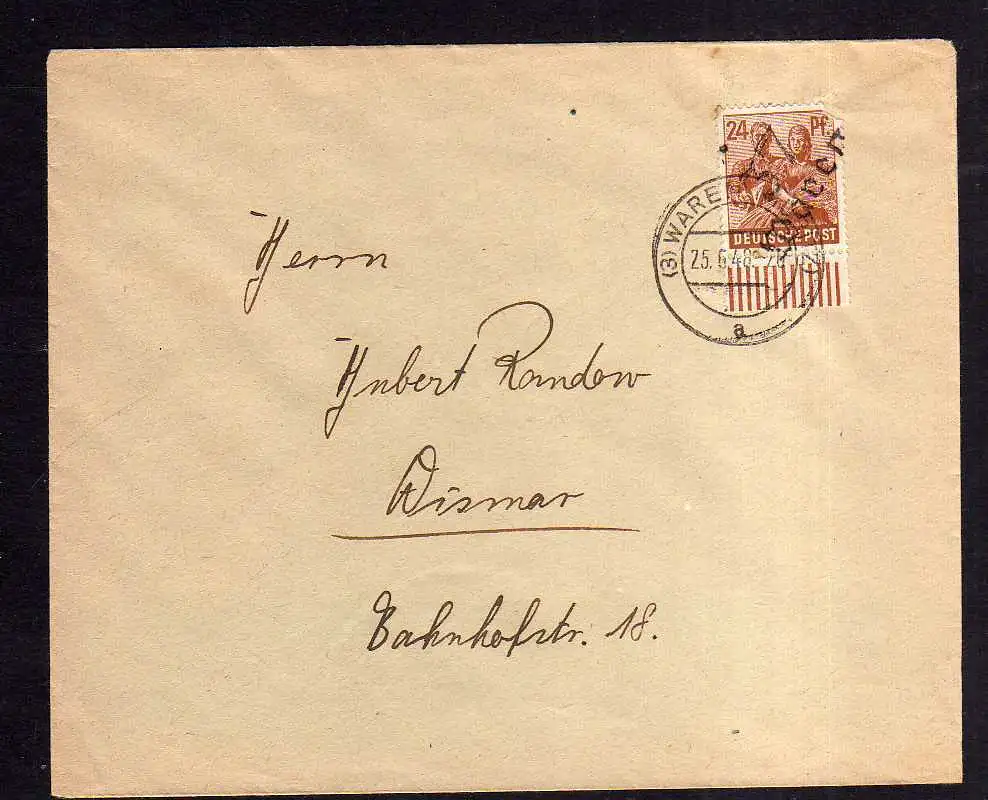 24 Pf
DEUTSCHE POST
(3) WARE
25.6.48
a
Herrn
Hubert Randow
Wismar
Bahnhofstr. 18.